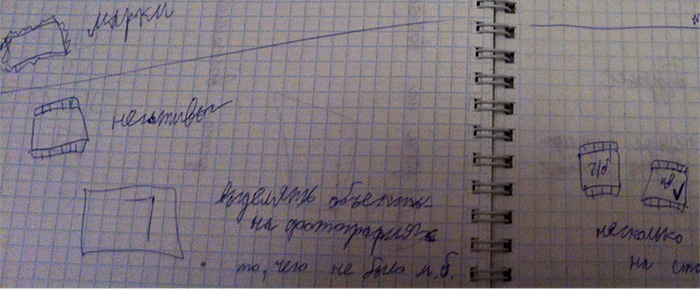 марки
негативы
выделять объекты
на фотографиях
то, чего не было м.б.
несколько
на